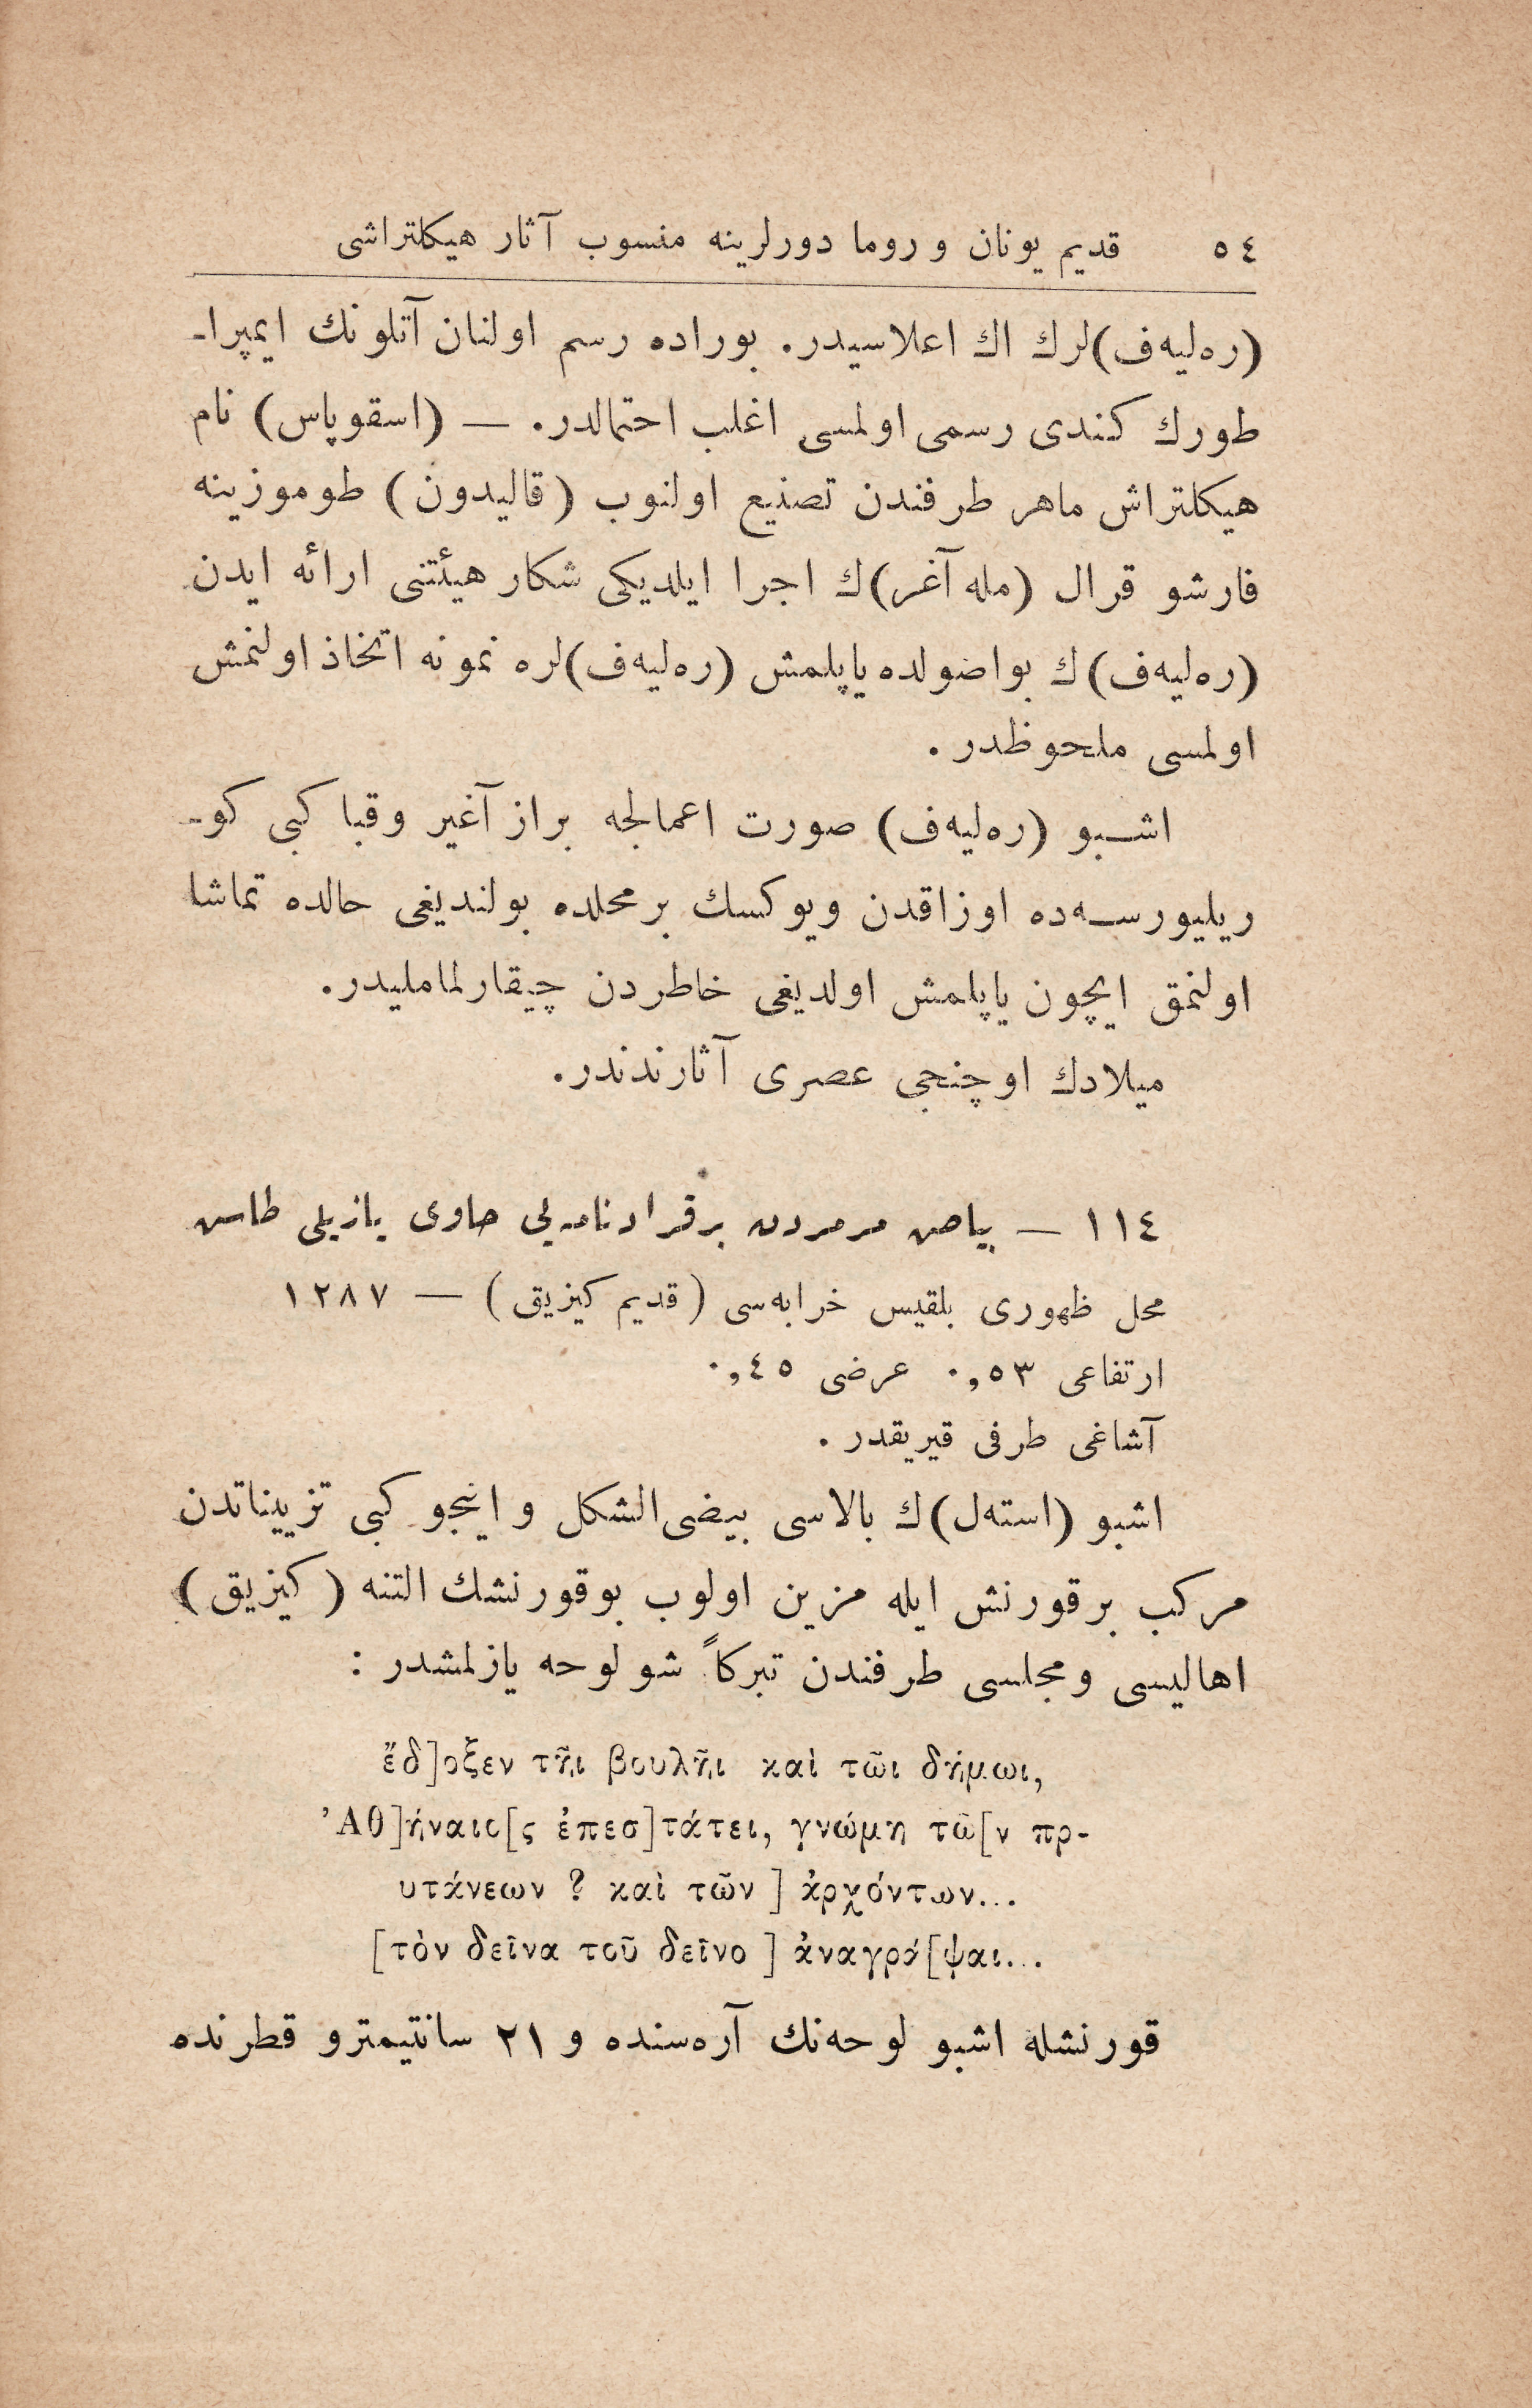 ٥٤ قديم يونان و روما دورلرينه منسوب آثار هيكلتراشى
(ره‌ليه‌ف)لرك اك اعلاسيدر. بوراده رسم اولنان آتلونك ايمپرا-
طورك كندى رسمى اولمسى اغلب احتمالدر. — (اسقوپاس) نام
هيكلتراش ماهر طرفندن تصنيع اولنوب (قاليدون) طوموزينه
قارشو قرال (مله آغر)ك اجرا ايلديكى شكار هيئتنى ارائه ايدن
(ره‌ليه‌ف)ك بواصولده ياپلمش (ره‌ليه‌ف)لره نمونه اتخاذ اولنمش
اولمسى ملحوظدر .
اشبو (ره‌ليه‌ف) صورت اعمالجه براز آغير وقبا كبى كو-
ريليورسه‌ده اوزاقدن ويوكسك برمحلده بولنديغى حالده تماشا
اولنمق ايچون ياپلمش اولديغى خاطردن چيقارلمامليدر.
ميلادك اوچنجى عصرى آثارندندر.
١١٤ — بياض مرمردن برقرارنامه‌يى حاوى يازيلى طاش
محل ظهورى بلقيس خرابه‌سى (قديم كيزيق) — ١٢٨٧
ارتفاعى ٠,٥٣ عرضى ٠,٤٥
آشاغى طرفى قيريقدر .
اشبو (استه‌ل)ك بالاسى بيضى‌الشكل و اينجو كبى تزييناتدن
مركب برقورنش ايله مزين اولوب بوقورنشك التنه (كيزيق)
اهاليسى ومجلسى طرفندن تبركاً شو لوحه يازلمشدر :
ἔδ]οξεν τῆι βουλῆι καὶ τῶι δήμωι,
Ἀθ]ήναιο[ς ἐπεσ]τάτει, γνώμη τῶ[ν πρ-
υτάνεων ? καὶ τῶν ] ἀρχόντων...
[τὸν δεῖνα τοῦ δεῖνο ] ἀναγρά[ψαι...
قورنشله اشبو لوحه‌نك آره‌سنده و ٢١ سانتيمترو قطرنده